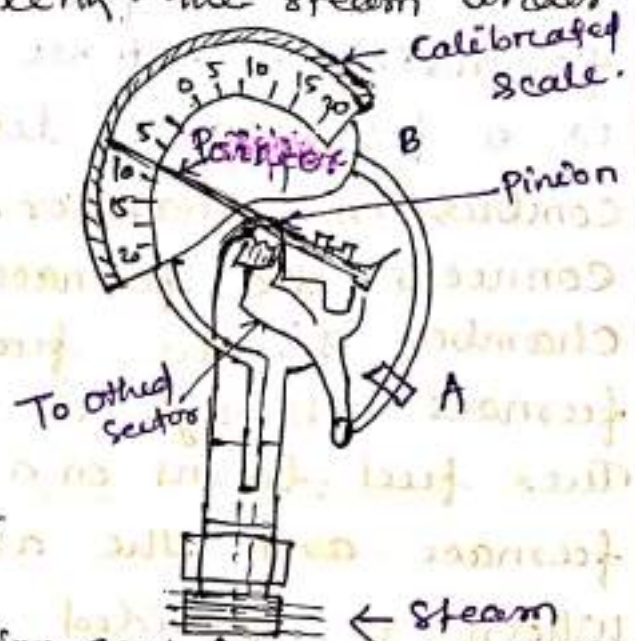 the steam
Calibreated
scale.
0 5 10 15 20
5
10
15
20
B
pinion
To othed
sector
A
← steam